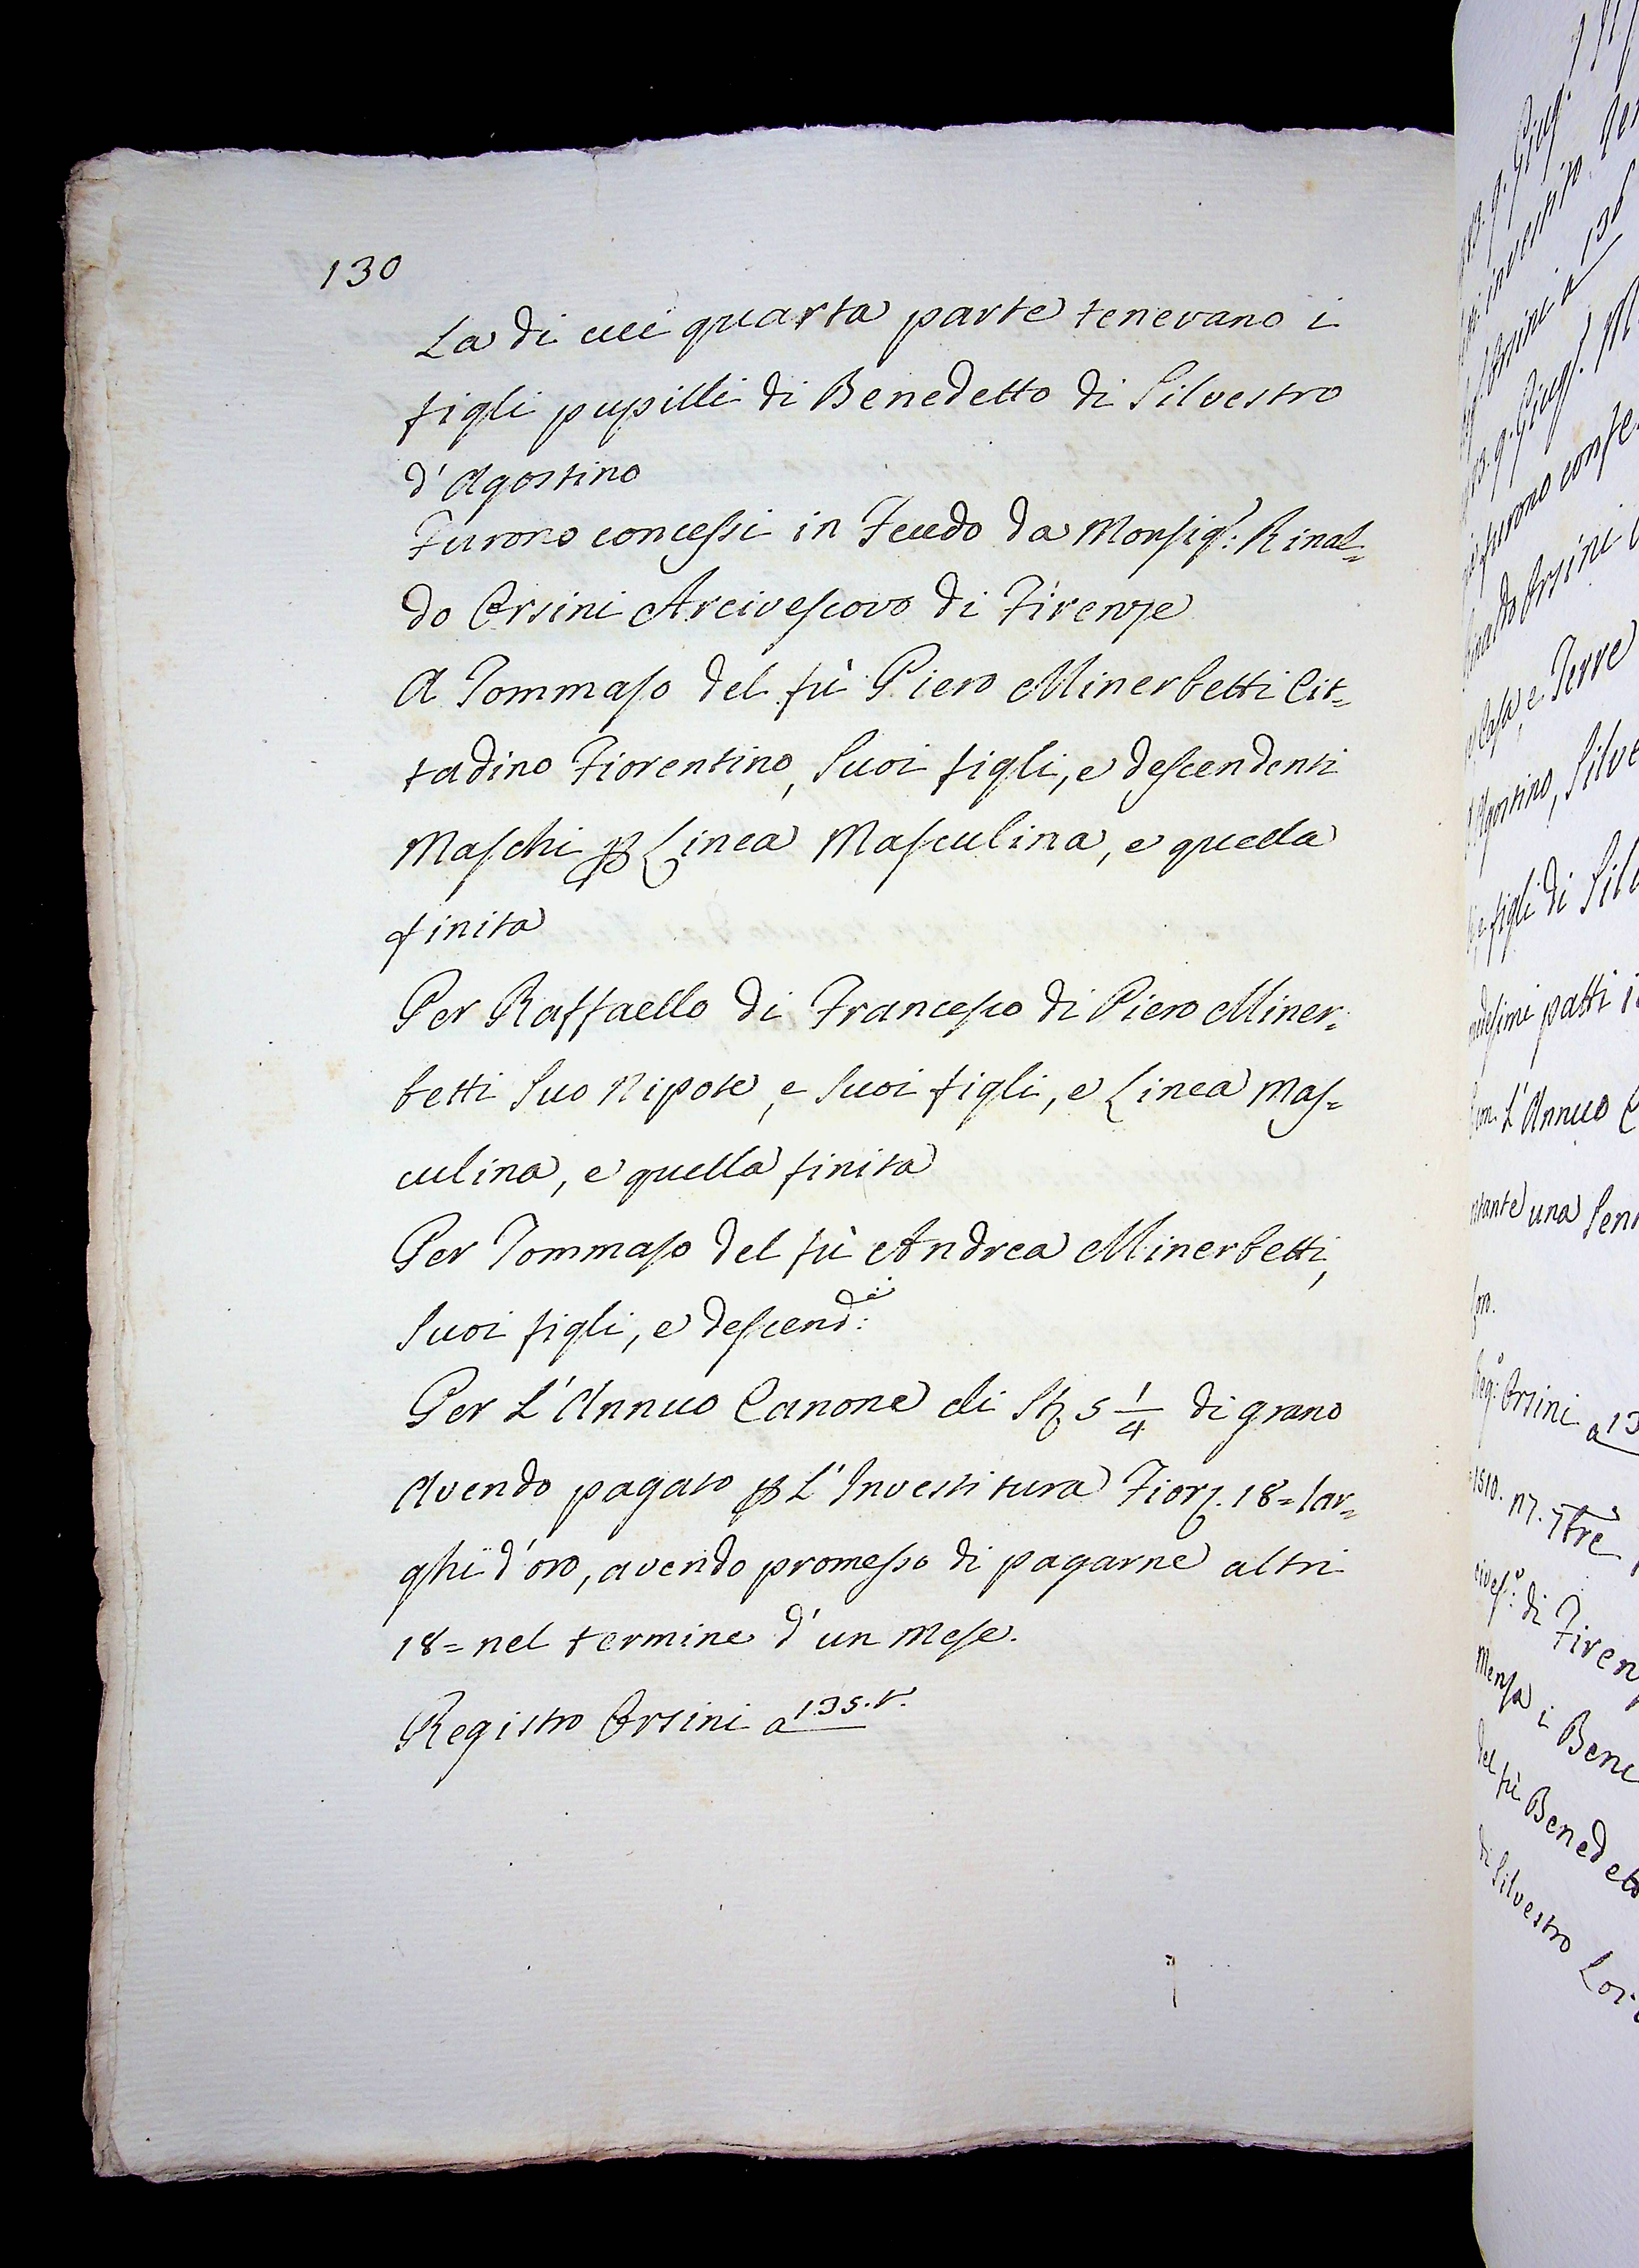 130
La di cui quarta parte tenevano i
figli pupilli di Benedetto di Silvestro
d'Agostino
Furono concessi in Feudo da Monsig.r: Rinal=
do Orsini Arcivescovo di Firenze
A Tommaso del fù Piero Minerbetti Cit=
tadino Fiorentino, Suoi figli, e descendenti
Maschi ꝑ Linea Masculina, e quella
finita
Per Raffaello di Francesco di Piero Miner=
betti Suo Nipote, e Suoi figli, e Linea Mas=
culina, e quella finita
Per Tommaso del fù Andrea Minerbetti,
Suoi figli, e descend:ti
Per L'Annuo Canone di St. 5 1/4 di grano
Avendo pagato ꝑ L'Investitura Fior. 18= lar=
ghi d'oro, avendo promesso di pagarne altri
18= nel termine d'un Mese.
Registro Orsini a 135.r.
Orsini a 136
furono conse
Rinaldo Orsini
Casa, e Terre
Agostino, Silve
figli di Sil
patti i
L'Annuo C
una Sen
Orsini a 13
1510. 7bre
di Firenz
Mensa i Beni
del fù Benedetto
di Silvestro Lor